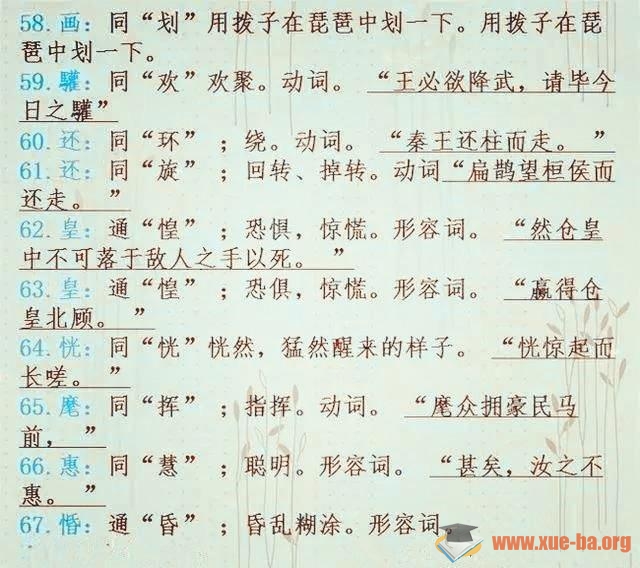 58.画：同“划”用拨子在琵琶中划一下。用拨子在琵
琶中划一下。
59.驩：同“欢”欢聚。动词。 “王必欲降武，请毕今
日之驩”
60.还：同“环”；绕。动词。 “秦王还柱而走。 ”
61.还：同“旋”；回转、掉转。动词“扁鹊望桓侯而
还走。 ”
62.皇：通“惶”；恐惧，惊慌。形容词。 “然仓皇
中不可落于敌人之手以死。 ”
63.皇：通“惶”；恐俱，惊慌。形容词。 “赢得仓
皇北顾。 ”
64.恍：同“恍”恍然，猛然醒来的样子。 “恍惊起而
长嗟。 ”
65.麾：同“挥”；指挥。动词。 “麾众拥豪民马
前， ”
66.惠：同“慧”；聪明。形容词。 “甚矣，汝之不
惠。 ”
67.惛：通“昏”；昏乱糊涂。形容词。
www.xue-ba.org